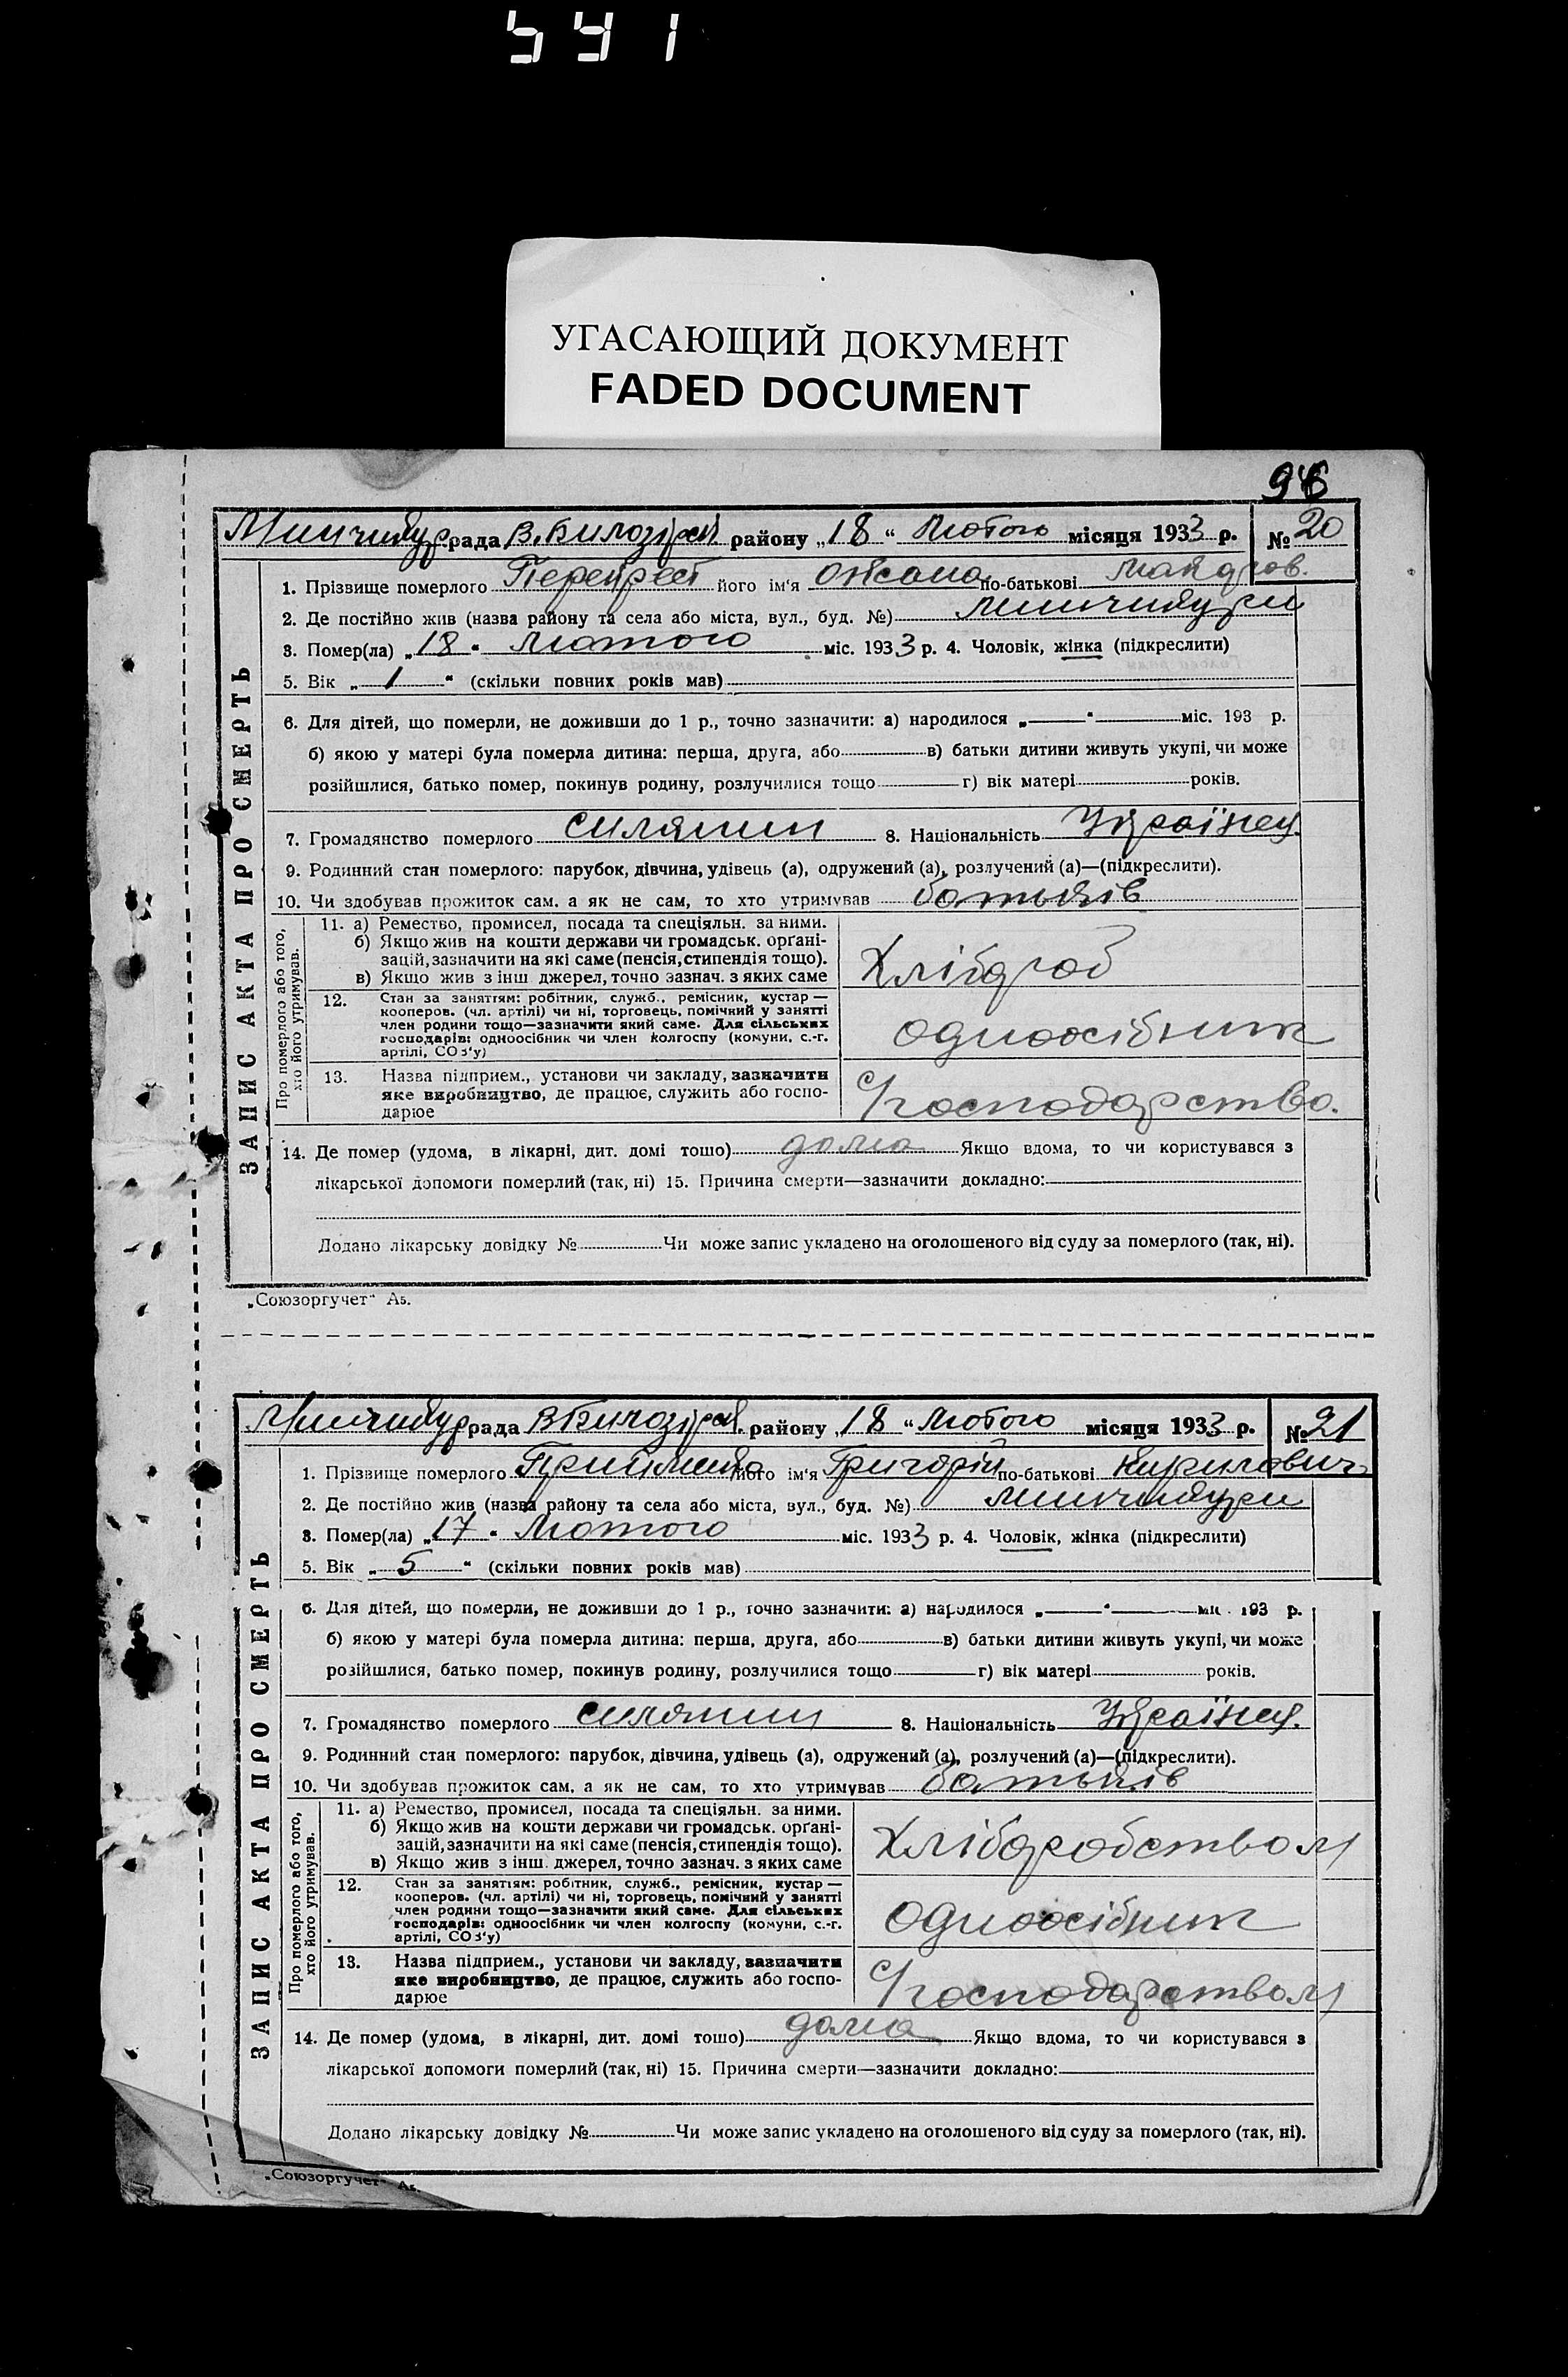 591
УГАСАЮЩИЙ ДОКУМЕНТ
FADED DOCUMENT
96
Минчикур рада В.Билозірський району „18“ Лютого місяця 1933 р. № 20
ЗАПИС АКТА ПРО СМЕРТЬ
1. Прізвище померлого Перехрест його ім'я Оксана по-батькові
2. Де постійно жив (назва району та села або міста, вул., буд. №) Минчикури
3. Помер(ла) „18“ Лютого міс. 1933 р. 4. Чоловік, жінка (підкреслити)
5. Вік „1“ (скільки повних років мав)
6. Для дітей, що померли, не доживши до 1 р., точно зазначити: а) народилося „—“ міс. 193 р.
б) якою у матері була померла дитина: перша, друга, або в) батьки дитини живуть укупі, чи може
розійшлися, батько помер, покинув родину, розлучилися тощо г) вік матері років.
7. Громадянство померлого силянин 8. Національність Українец
9. Родинний стан померлого: парубок, дівчина, удівець (а), одружений (а), розлучений (а)—(підкреслити).
10. Чи здобував прожиток сам, а як не сам, то хто утримував батьків
Про померлого або того, хто його утримував.
11. а) Ремество, промисел, посада та спеціяльн. за ними.
б) Якщо жив на кошти держави чи громадськ. орґані-
зацій, зазначити на які саме (пенсія, стипендія тощо).
в) Якщо жив з інш джерел, точно зазнач. з яких саме
Хлібороб
12. Стан за заняттям: робітник, служб., ремісник, кустар —
кооперов. (чл. артілі) чи ні, торговець, помічний у занятті
член родини тощо—зазначити який саме. Для сільських
господарів: одноосібник чи член колгоспу (комуни, с.-г.
артілі, СОЗ'у)
одноосібник
13. Назва підприем., установи чи закладу, зазначити
яке виробництво, де працює, служить або госпо-
дарює
С/господарство.
14. Де помер (удома, в лікарні, дит. домі тошо) дома Якщо вдома, то чи користувався з
лікарської допомоги померлий (так, ні) 15. Причина смерти—зазначити докладно:
Додано лікарську довідку № Чи може запис укладено на оголошеного від суду за померлого (так, ні).
„Союзоргучет“ А5.
Минчикур рада В Билозірський району „18“ Лютого місяця 1933 р. № 21
ЗАПИС АКТА ПРО СМЕРТЬ
1. Прізвище померлого його ім'я Григорій по-батькові Кирилович
2. Де постійно жив (назва району та села або міста, вул., буд. №) Минчикури
3. Помер(ла) „17“ Лютого міс. 1933 р. 4. Чоловік, жінка (підкреслити)
5. Вік „5“ (скільки повних років мав)
6. Для дітей, що померли, не доживши до 1 р., точно зазначити: а) народилося „—“ міс. 193 р.
б) якою у матері була померла дитина: перша, друга, або в) батьки дитини живуть укупі, чи може
розійшлися, батько помер, покинув родину, розлучилися тощо г) вік матері років.
7. Громадянство померлого силянин 8. Національність Українец.
9. Родинний стан померлого: парубок, дівчина, удівець (а), одружений (а), розлучений (а)—(підкреслити).
10. Чи здобував прожиток сам, а як не сам, то хто утримував батьків
Про померлого або того, хто його утримував.
11. а) Ремество, промисел, посада та спеціяльн. за ними.
б) Якщо жив на кошти держави чи громадськ. орґані-
зацій, зазначити на які саме (пенсія, стипендія тощо).
в) Якщо жив з інш. джерел, точно зазнач. з яких саме
Хліборобством
12. Стан за заняттям: робітник, служб., ремісник, кустар —
кооперов. (чл. артілі) чи ні, торговець, помічний у занятті
член родини тощо—зазначити який саме. Для сільських
господарів: одноосібник чи член колгоспу (комуни, с.-г.
артілі, СОЗ'у)
одноосібник
13. Назва підприем., установи чи закладу, зазначити
яке виробництво, де працює, служить або госпо-
дарює
С/господарством
14. Де помер (удома, в лікарні, дит. домі тошо) дома Якщо вдома, то чи користувався з
лікарської допомоги померлий (так, ні) 15. Причина смерти—зазначити докладно:
Додано лікарську довідку № Чи може запис укладено на оголошеного від суду за померлого (так, ні).
„Союзоргучет“ А5.